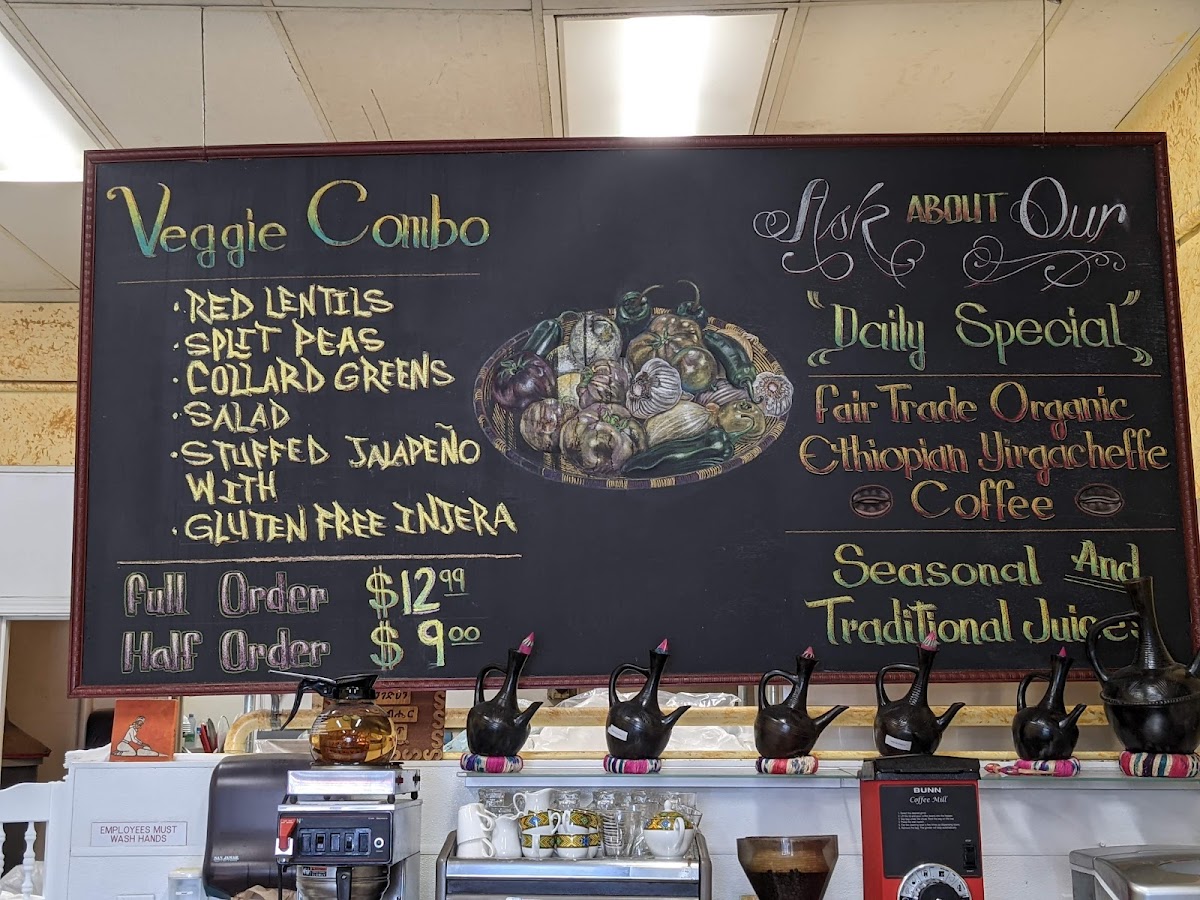 Veggie Combo
· RED LENTILS
· SPLIT PEAS
· COLLARD GREENS
· SALAD
· STUFFED JALAPEÑO
WITH
· GLUTEN FREE INJERA
Full Order $12.99
Half Order $9.00
Ask ABOUT Our
"Daily Special"
Fair Trade Organic
Ethiopian Yirgacheffe
Coffee
Seasonal And
Traditional Juices
EMPLOYEES MUST
WASH HANDS
BUNN
Coffee Mill